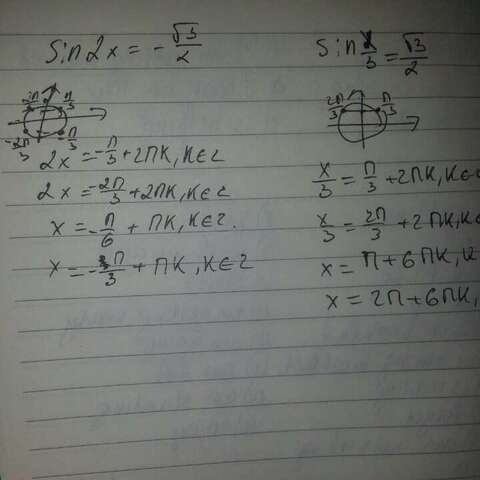 Sin2x = -√3/2
2π/3 π/3
-2π/3 -π/3
2x = -π/3 + 2πK, K∈Z
2x = -2π/3 + 2πK, K∈Z
x = -π/6 + πK, K∈Z.
x = -π/3 + πK, K∈Z
Sin x/3 = √3/2
2π/3 π/3
x/3 = π/3 + 2πK, K∈
x/3 = 2π/3 + 2πK, K
x = π + 6πK, K
x = 2π + 6πK,